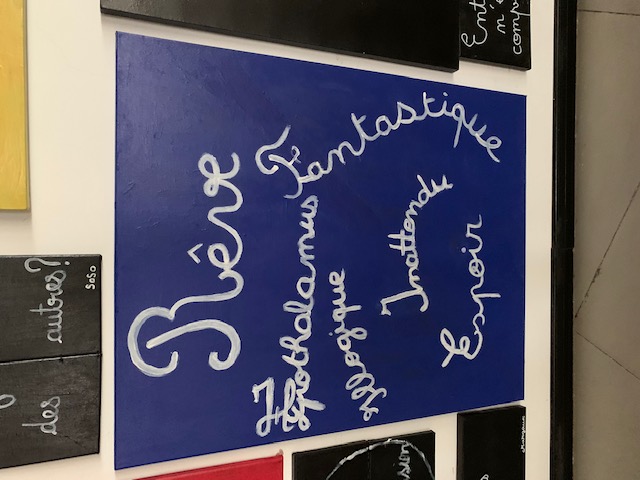 Rêve
Hypothalamus
Fantastique
Illogique
Inattendu
Espoir
des autres?
SoSo